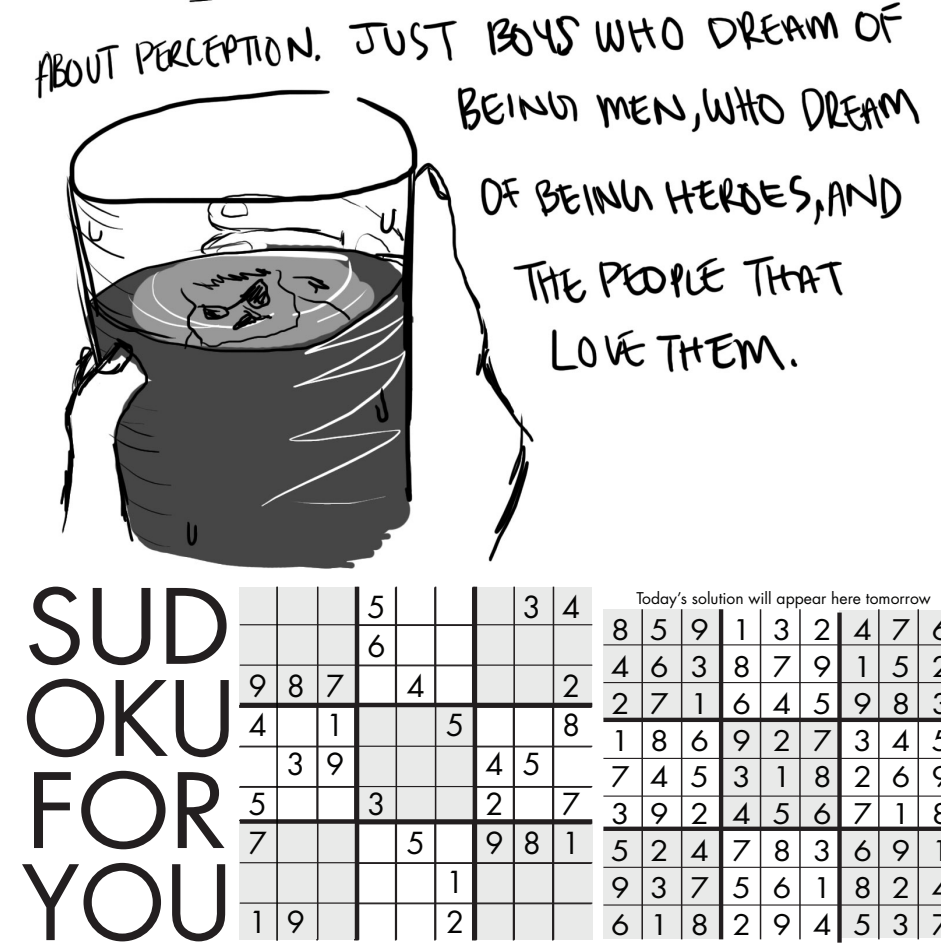 ABOUT PERCEPTION. JUST BOYS WHO DREAM OF
BEING MEN, WHO DREAM
OF BEING HEROES, AND
THE PEOPLE THAT
LOVE THEM.
SUD
OKU
FOR
YOU
5 3 4
6
9 8 7 4 2
4 1 5 8
3 9 4 5
5 3 2 7
7 5 9 8 1
1
1 9 2
Today's solution will appear here tomorrow
8 5 9 1 3 2 4 7 6
4 6 3 8 7 9 1 5 2
2 7 1 6 4 5 9 8 3
1 8 6 9 2 7 3 4 5
7 4 5 3 1 8 2 6 9
3 9 2 4 5 6 7 1 8
5 2 4 7 8 3 6 9 1
9 3 7 5 6 1 8 2 4
6 1 8 2 9 4 5 3 7